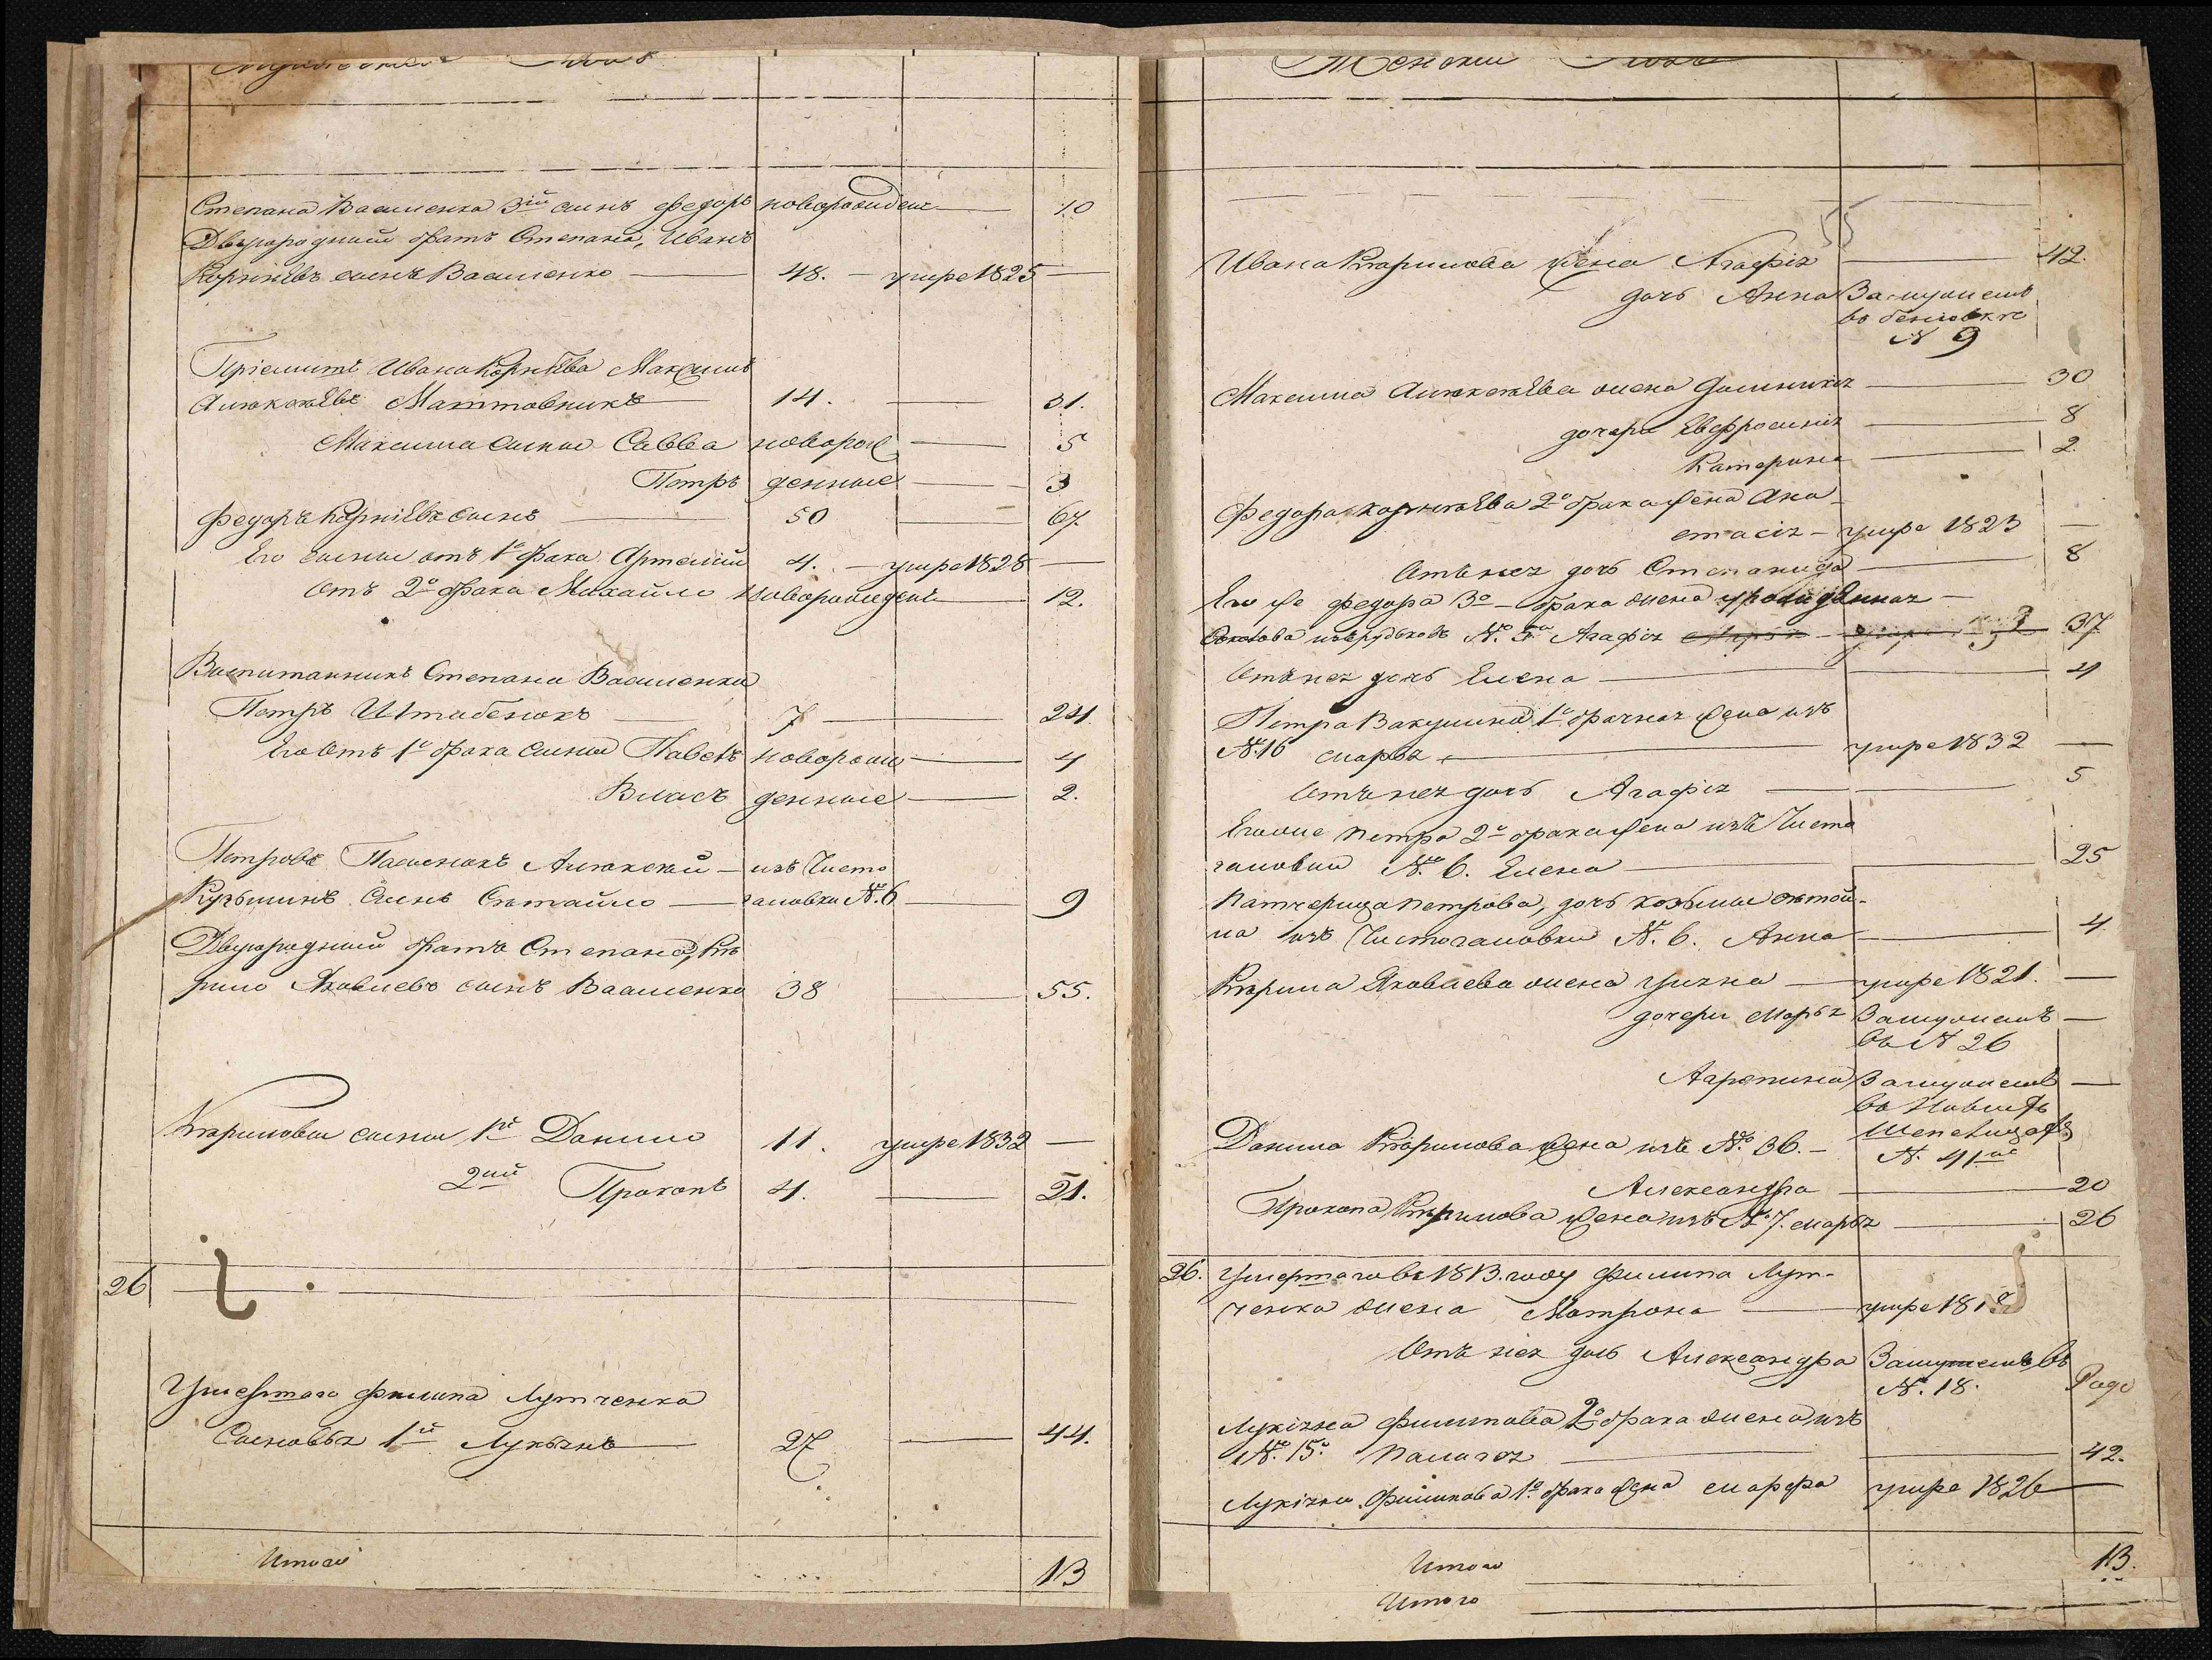 Мужескій Полъ
Степана Василенка 3ій сынъ Федоръ новорожденъ — 10
Двоюродный братъ Степана, Иванъ
Корнѣевъ сынъ Василенко — 48. — умре 1825 —
Пріемитъ Ивана Корнѣева Максимъ
Алексѣевъ 14. — 31.
Максима сыны Савва новорож — 5
Петръ денные — 3
Федоръ Корніевъ сынъ — 50 — 67.
Его сыны отъ 1го брака Артемій 4. — умре 1828 —
Отъ 2го брака Михайло новорожденъ — 12.
Воспитанникъ Степана Василенка
Петръ — 7 — 24.
Его отъ 1го брака сыны Павелъ новорож — 4
Власъ денные — 2.
Петровъ Пасынокъ Алексѣй — изъ Чисто
сынъ — галовки №. 6 — 9
Двоюродный братъ Степана, Ки
рило Яковлевъ сынъ Василенко 38 — 55.
Кирилова сыны 1й Данило 11. умре 1832 —
2ий Прокопъ 4. — 21.
26
Умершаго Филипа Лутченка
Сыновья 1й Лукьянъ — 27 — 44.
Итого 13
Женскій Полъ
55
Ивана жена Агафія — 42.
дочь Анна Замужемъ
въ
№ 9
Максима Алексѣева жена — 30
дочери Евфросинія — 8
Катерина — 2.
Федора Корнѣева 2го брака жена Ана
стасія — умре 1823 —
Отъ нея дочь Степанида — 8
Его же Федора 3го — брака жена —
№ 5 Агафія — 37
Отъ нея дочь Елена — 4
Петра 1го жена изъ
№. 16 Марья — умре 1832 —
Отъ нея дочь Агафія — 5
Его же Петра 2го брака жена изъ Чисто
галовки №. 6. Елена — 25
Патчерица Петрова, дочь Козьмы
изъ Чистогаловки №. 6. Анна — 4
Кирила Яковлева жена — умре 1821. —
дочери Марья Замужемъ —
въ № 26
Агрепина Замужемъ —
въ
Шепеличахъ
№. 41
Данила Кирилова жена изъ №. 36. —
Александра — 20
Прокопа Кирилова жена изъ № 7. Марья — 26
26. Умершаго въ 1813. году Филипа Лут-
ченка жена Матрона — умре
Отъ нея дочь Александра Замужемъ въ
№. 18.
Филипова 2го брака жена изъ
№. 15. Палагея — 42.
Филипова 1го брака жена Марфа умре 1826 —
Итого 13.
Итого